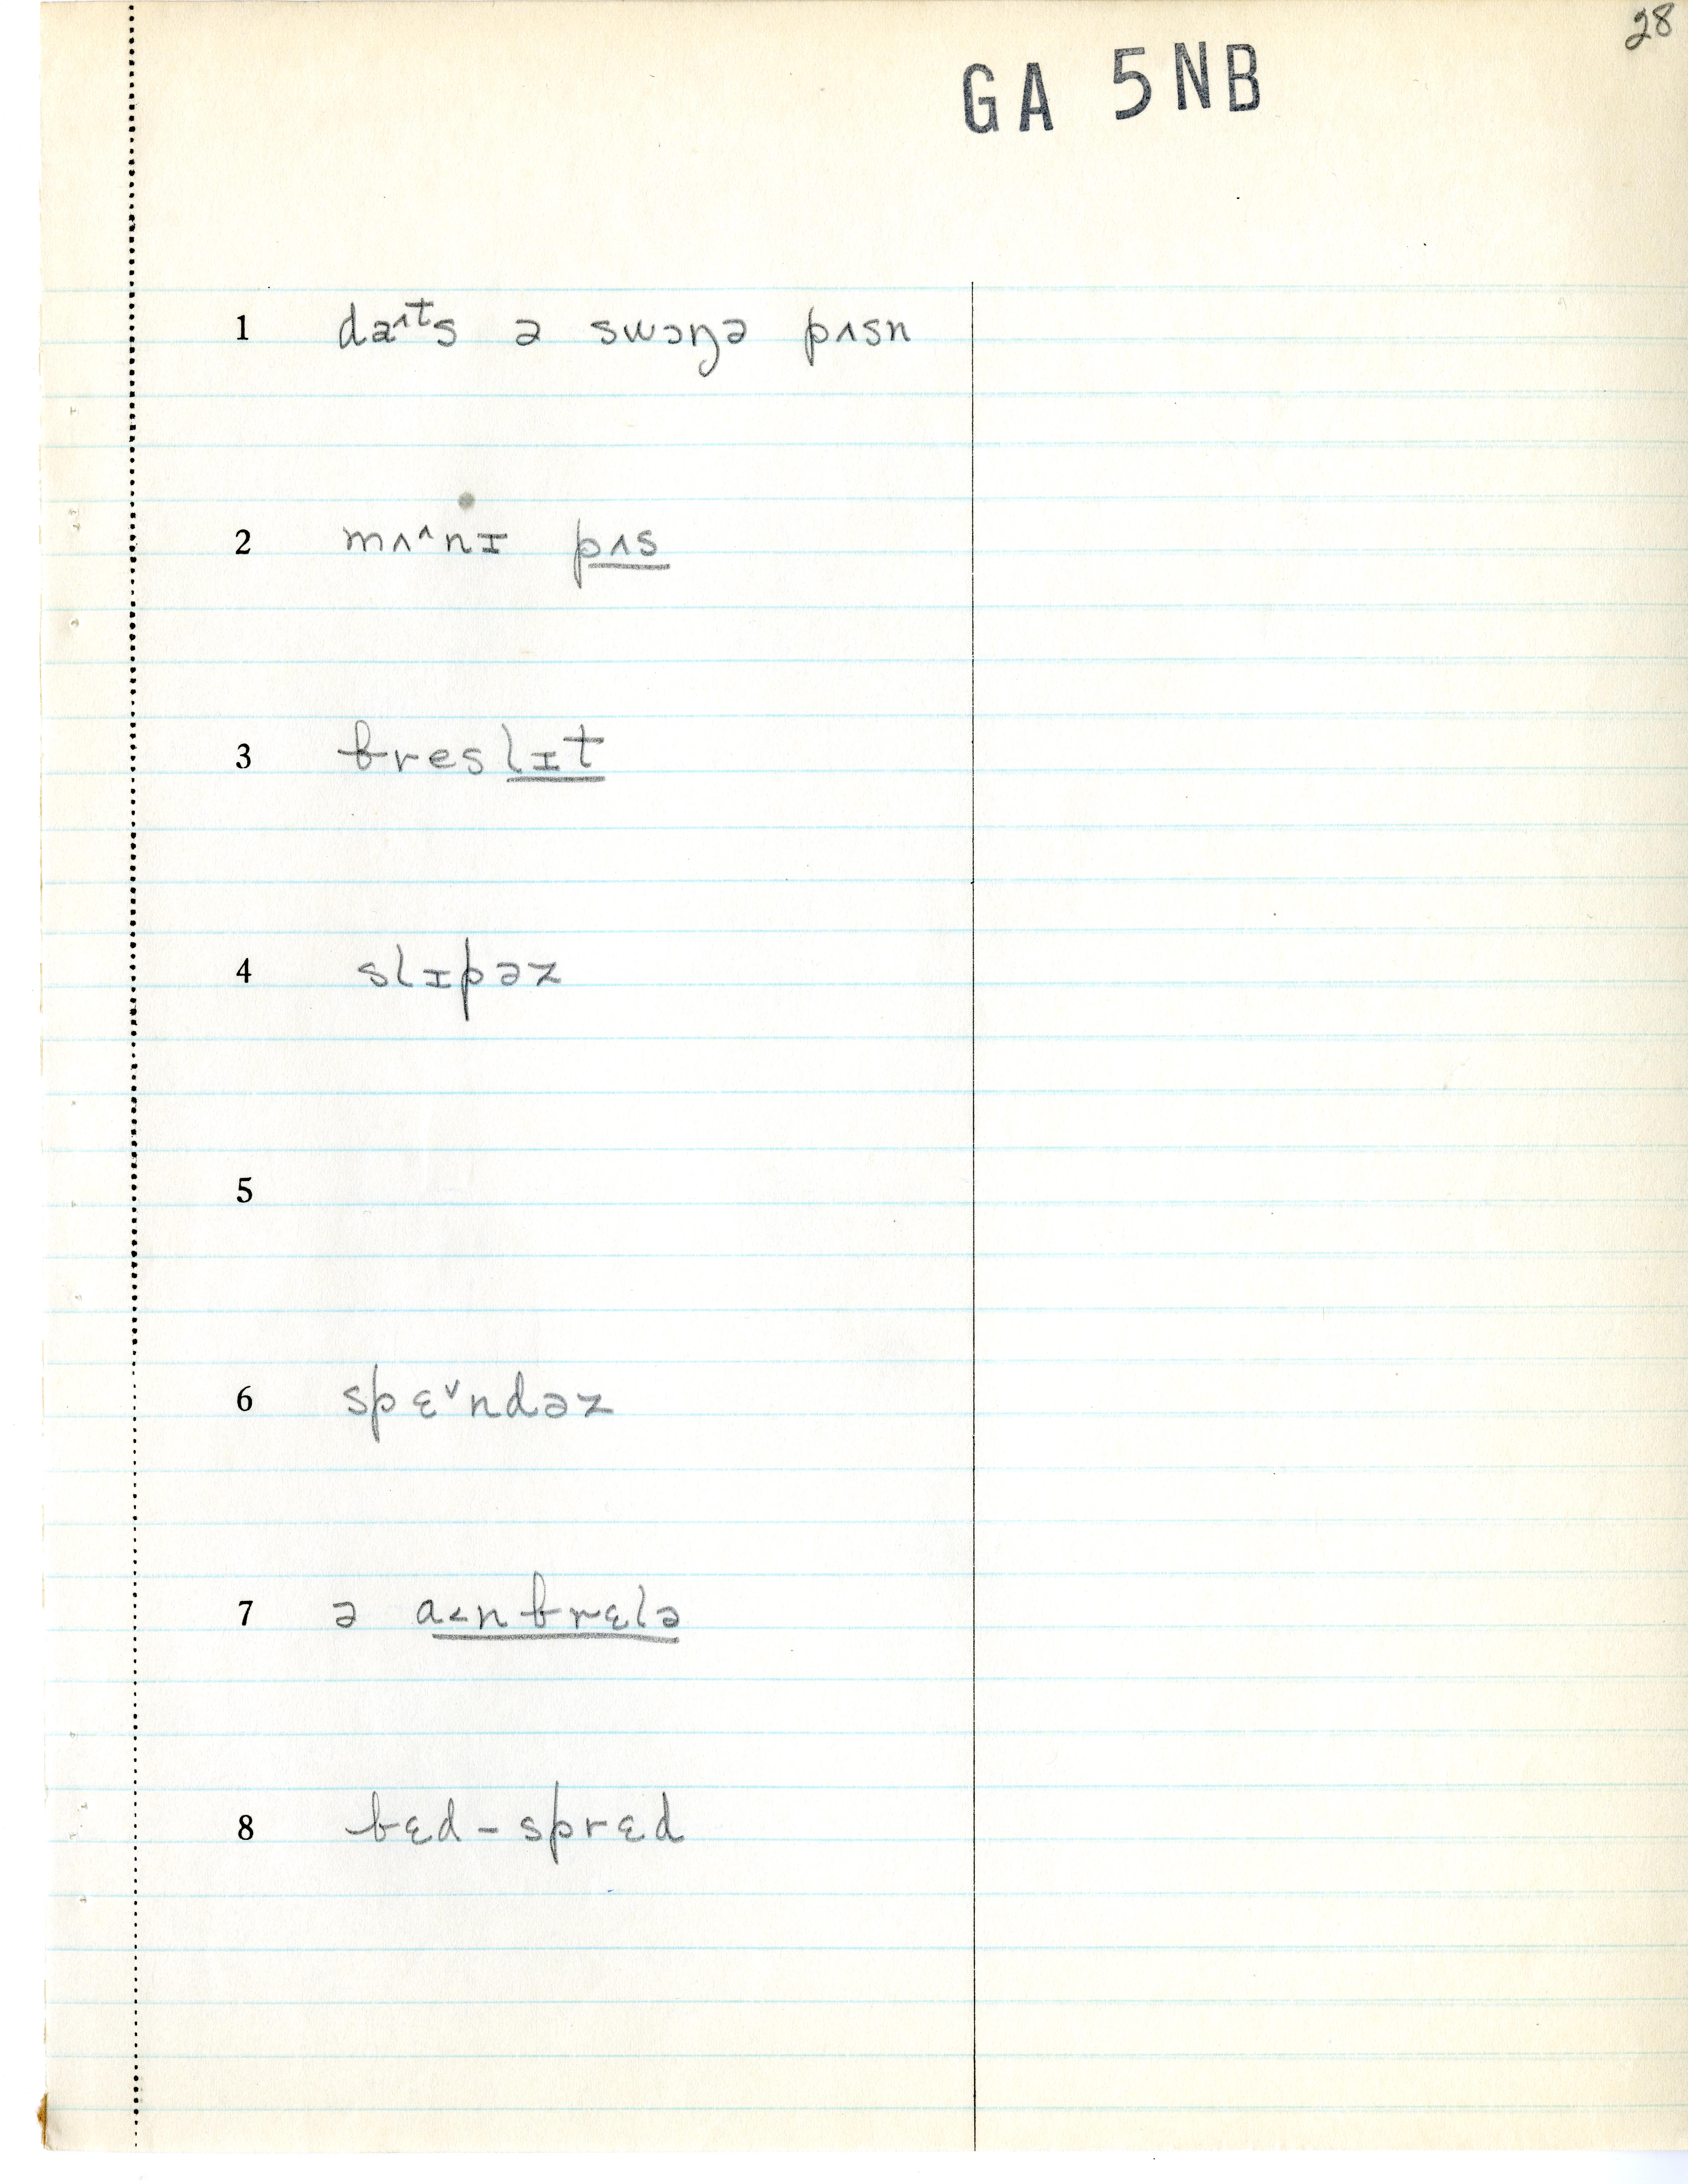 28
GA 5NB
1 daᶺᵗs ə swɔŋə pʌsn
2 mʌᶺnɪ pʌs
3 breslɪt
4 slɪpəz
5
6 spɛᵛndəz
7 ə a˂nbrɛlə
8 bɛd-sprɛd